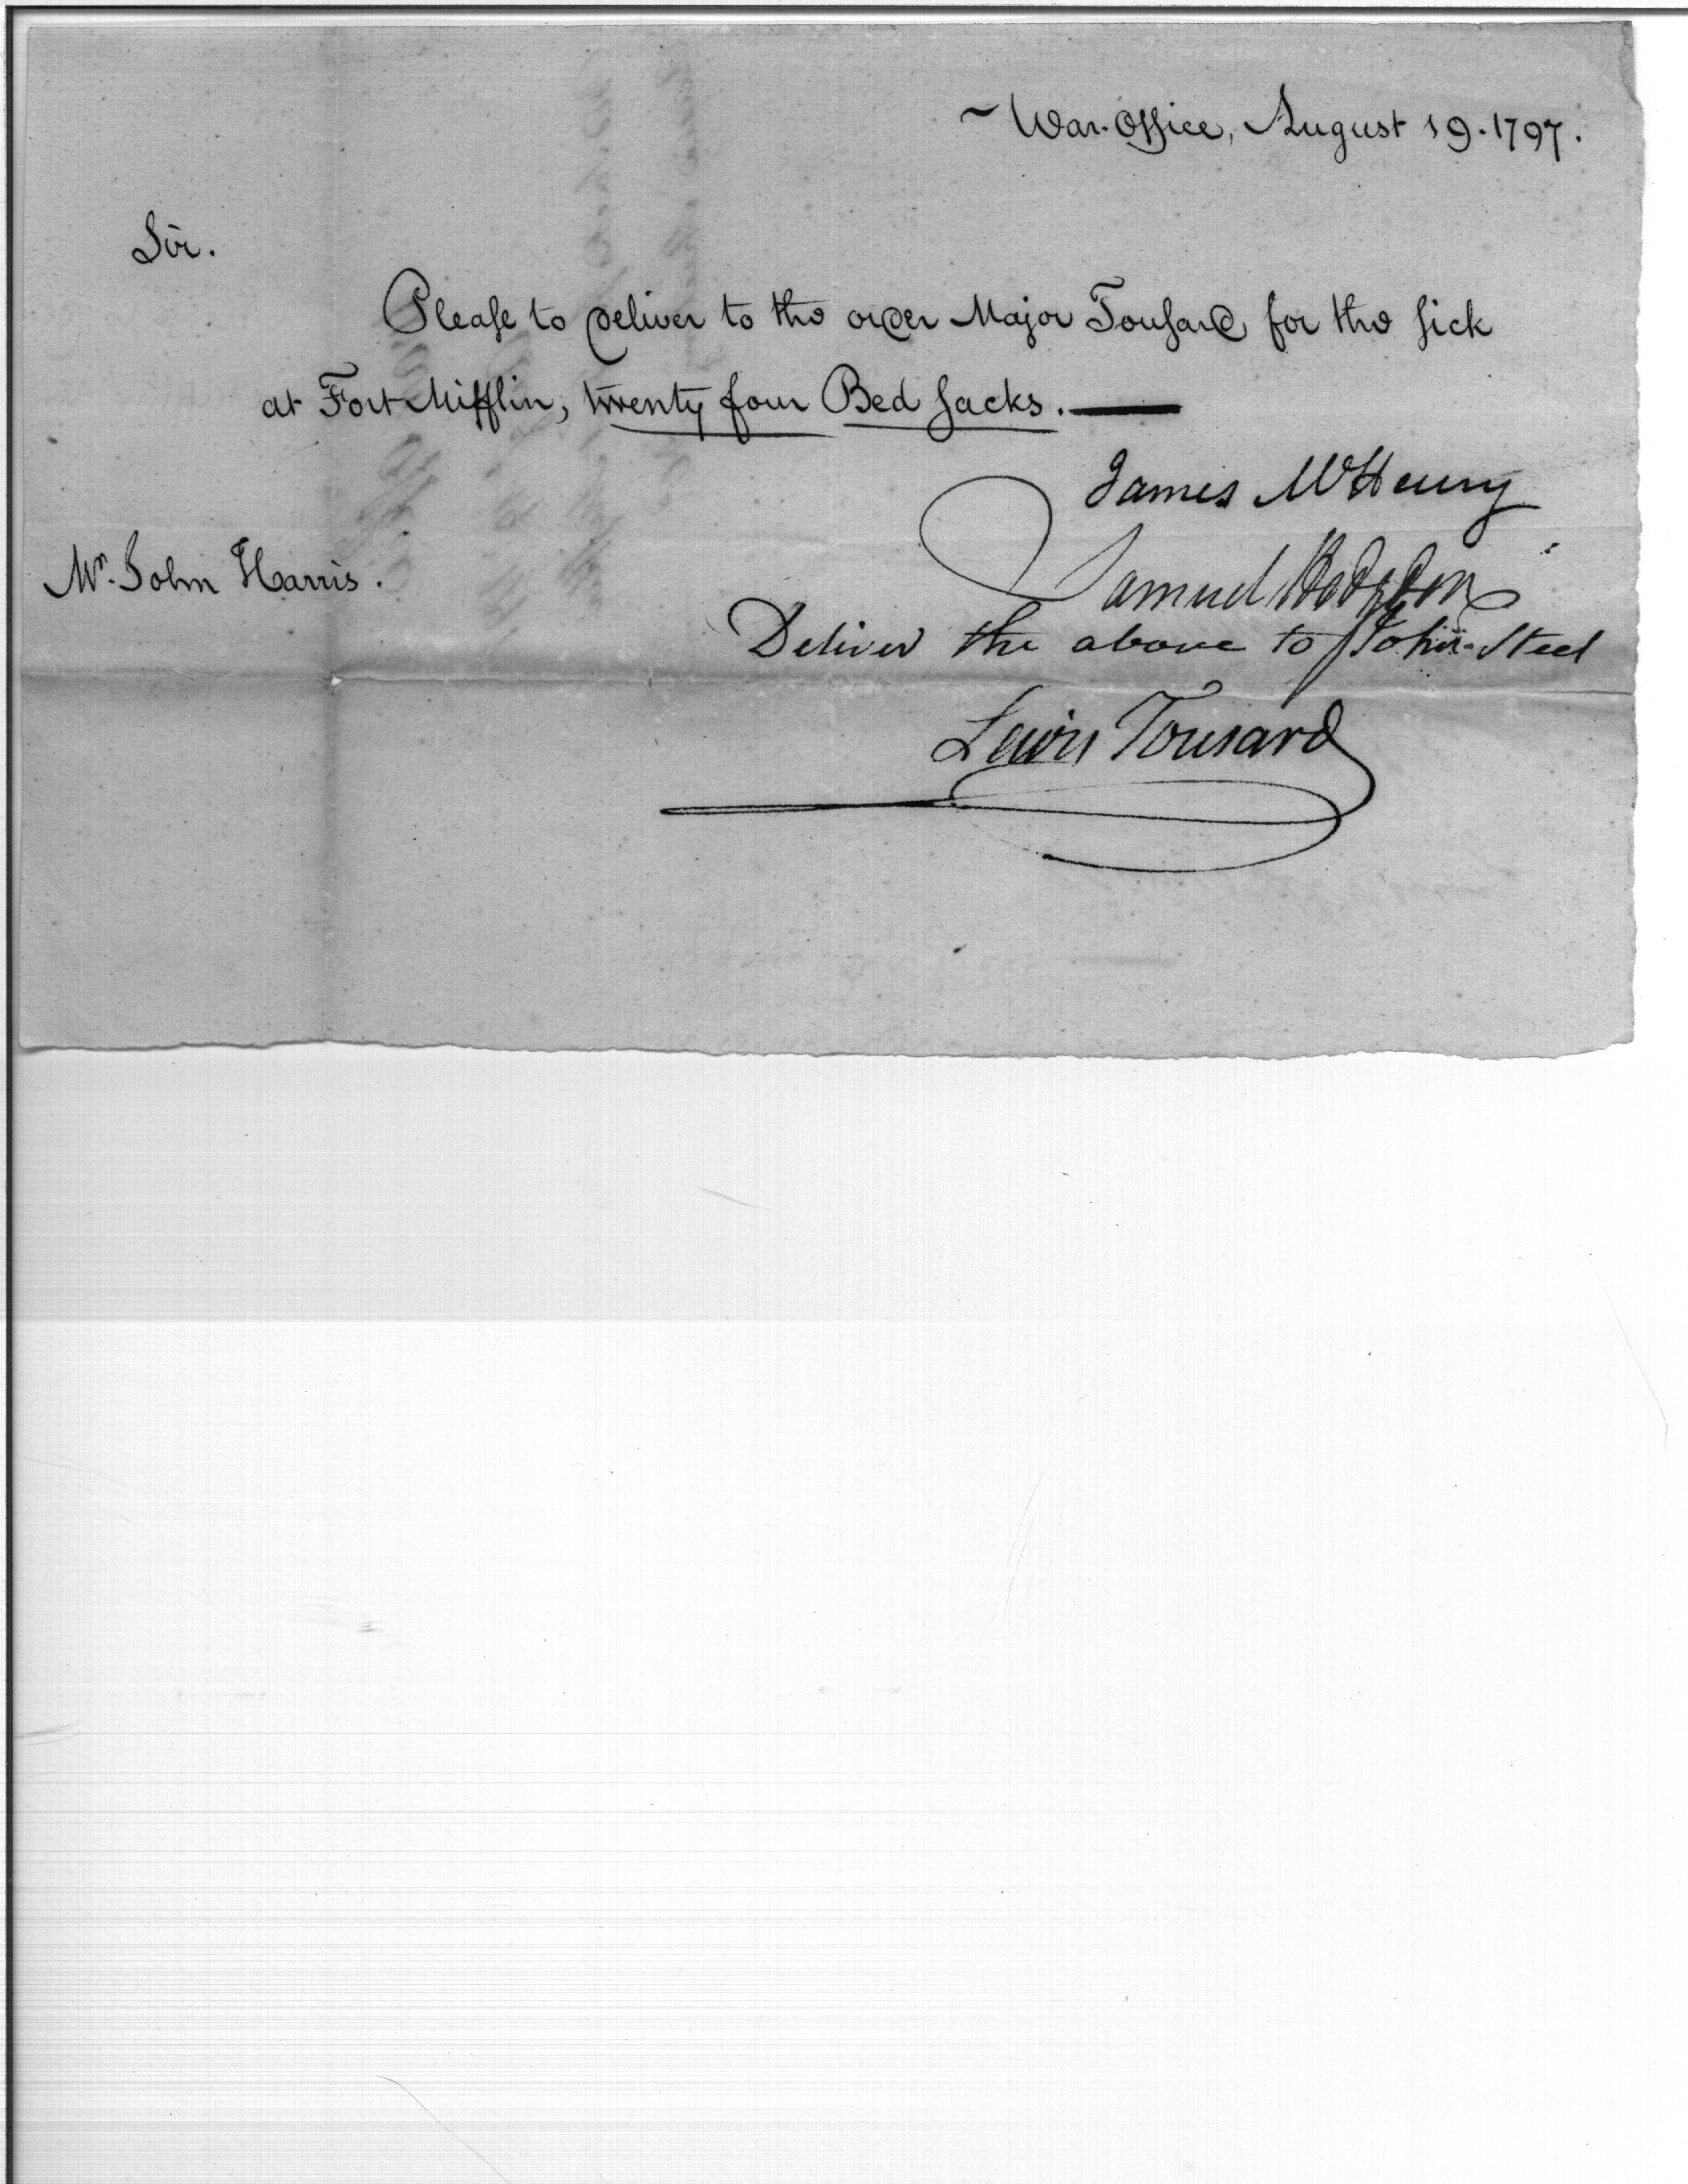 ~ War-Office, August 19. 1797.
Sir.
Please to deliver to the order Major Tousard, for the sick
at Fort Mifflin, twenty four Bed sacks. —
James McHenry
Samuel Hodgdon
Mr. John Harris.
Deliver the above to John Steel
Lewis Tousard